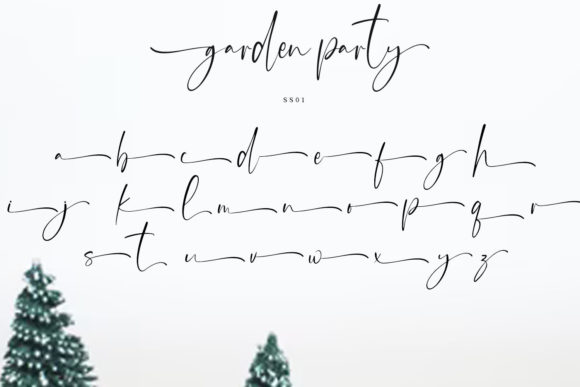 garden party
SS01
a b c d e f g h
i j k l m n o p q r
s t u v w x y z